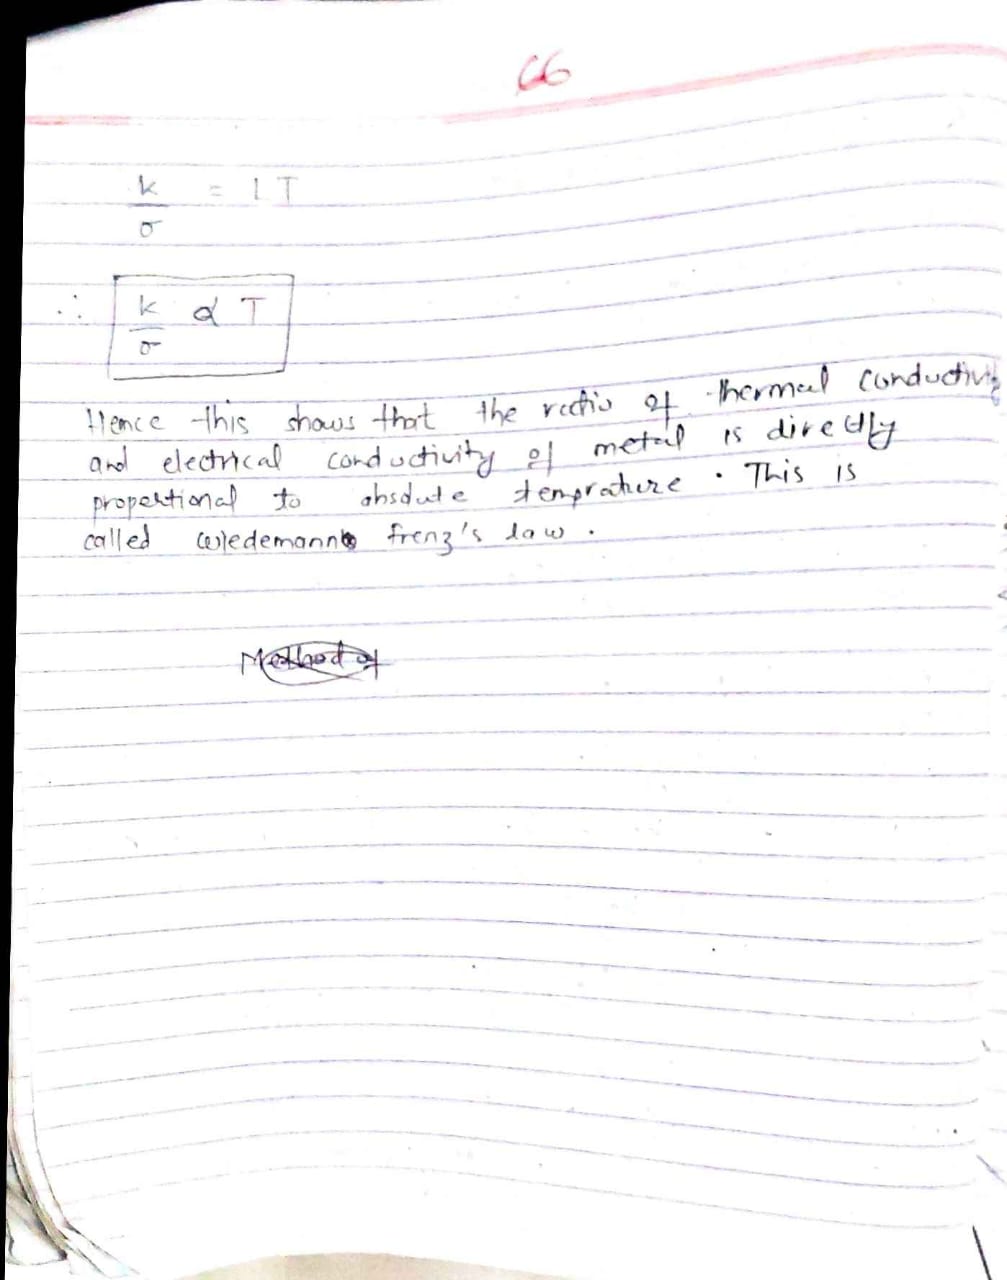 66
k/σ = LT
∴ k/σ ∝ T
Hence this shows that the ratio of thermal conductivi
and electrical conductivity of metal is directly
propertional to absolute temprature. This is
called wiedemann frenz's law.
Method of